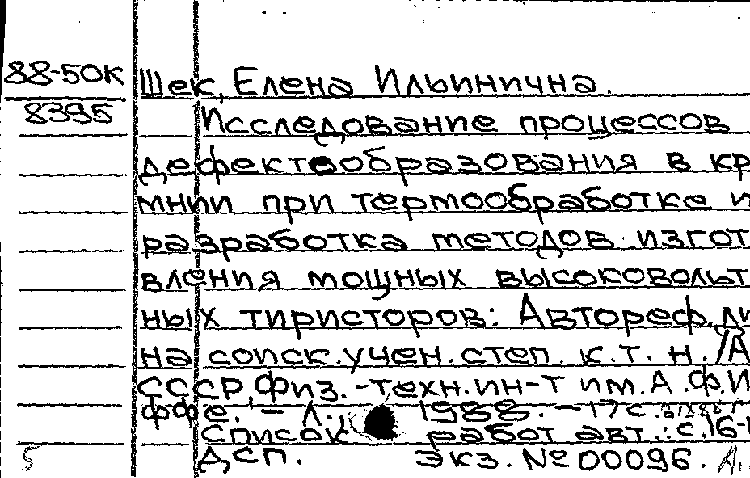 88-50К Шек, Елена Ильинична.
8395 Исследование процессов
дефектообразования в кр
мнии при термообработке и
разработка методов изгот
вления мощных высоковольт
ных тиристоров: Автореф. ди
на соиск. учен. степ. к. т. н. /А
СССР, Физ.-техн. ин-т им. А. Ф. И
ффе. - Л., 1988. - 17 с.
Список работ авт.: с. 16-1
ДСП. Экз. № 00096.
5